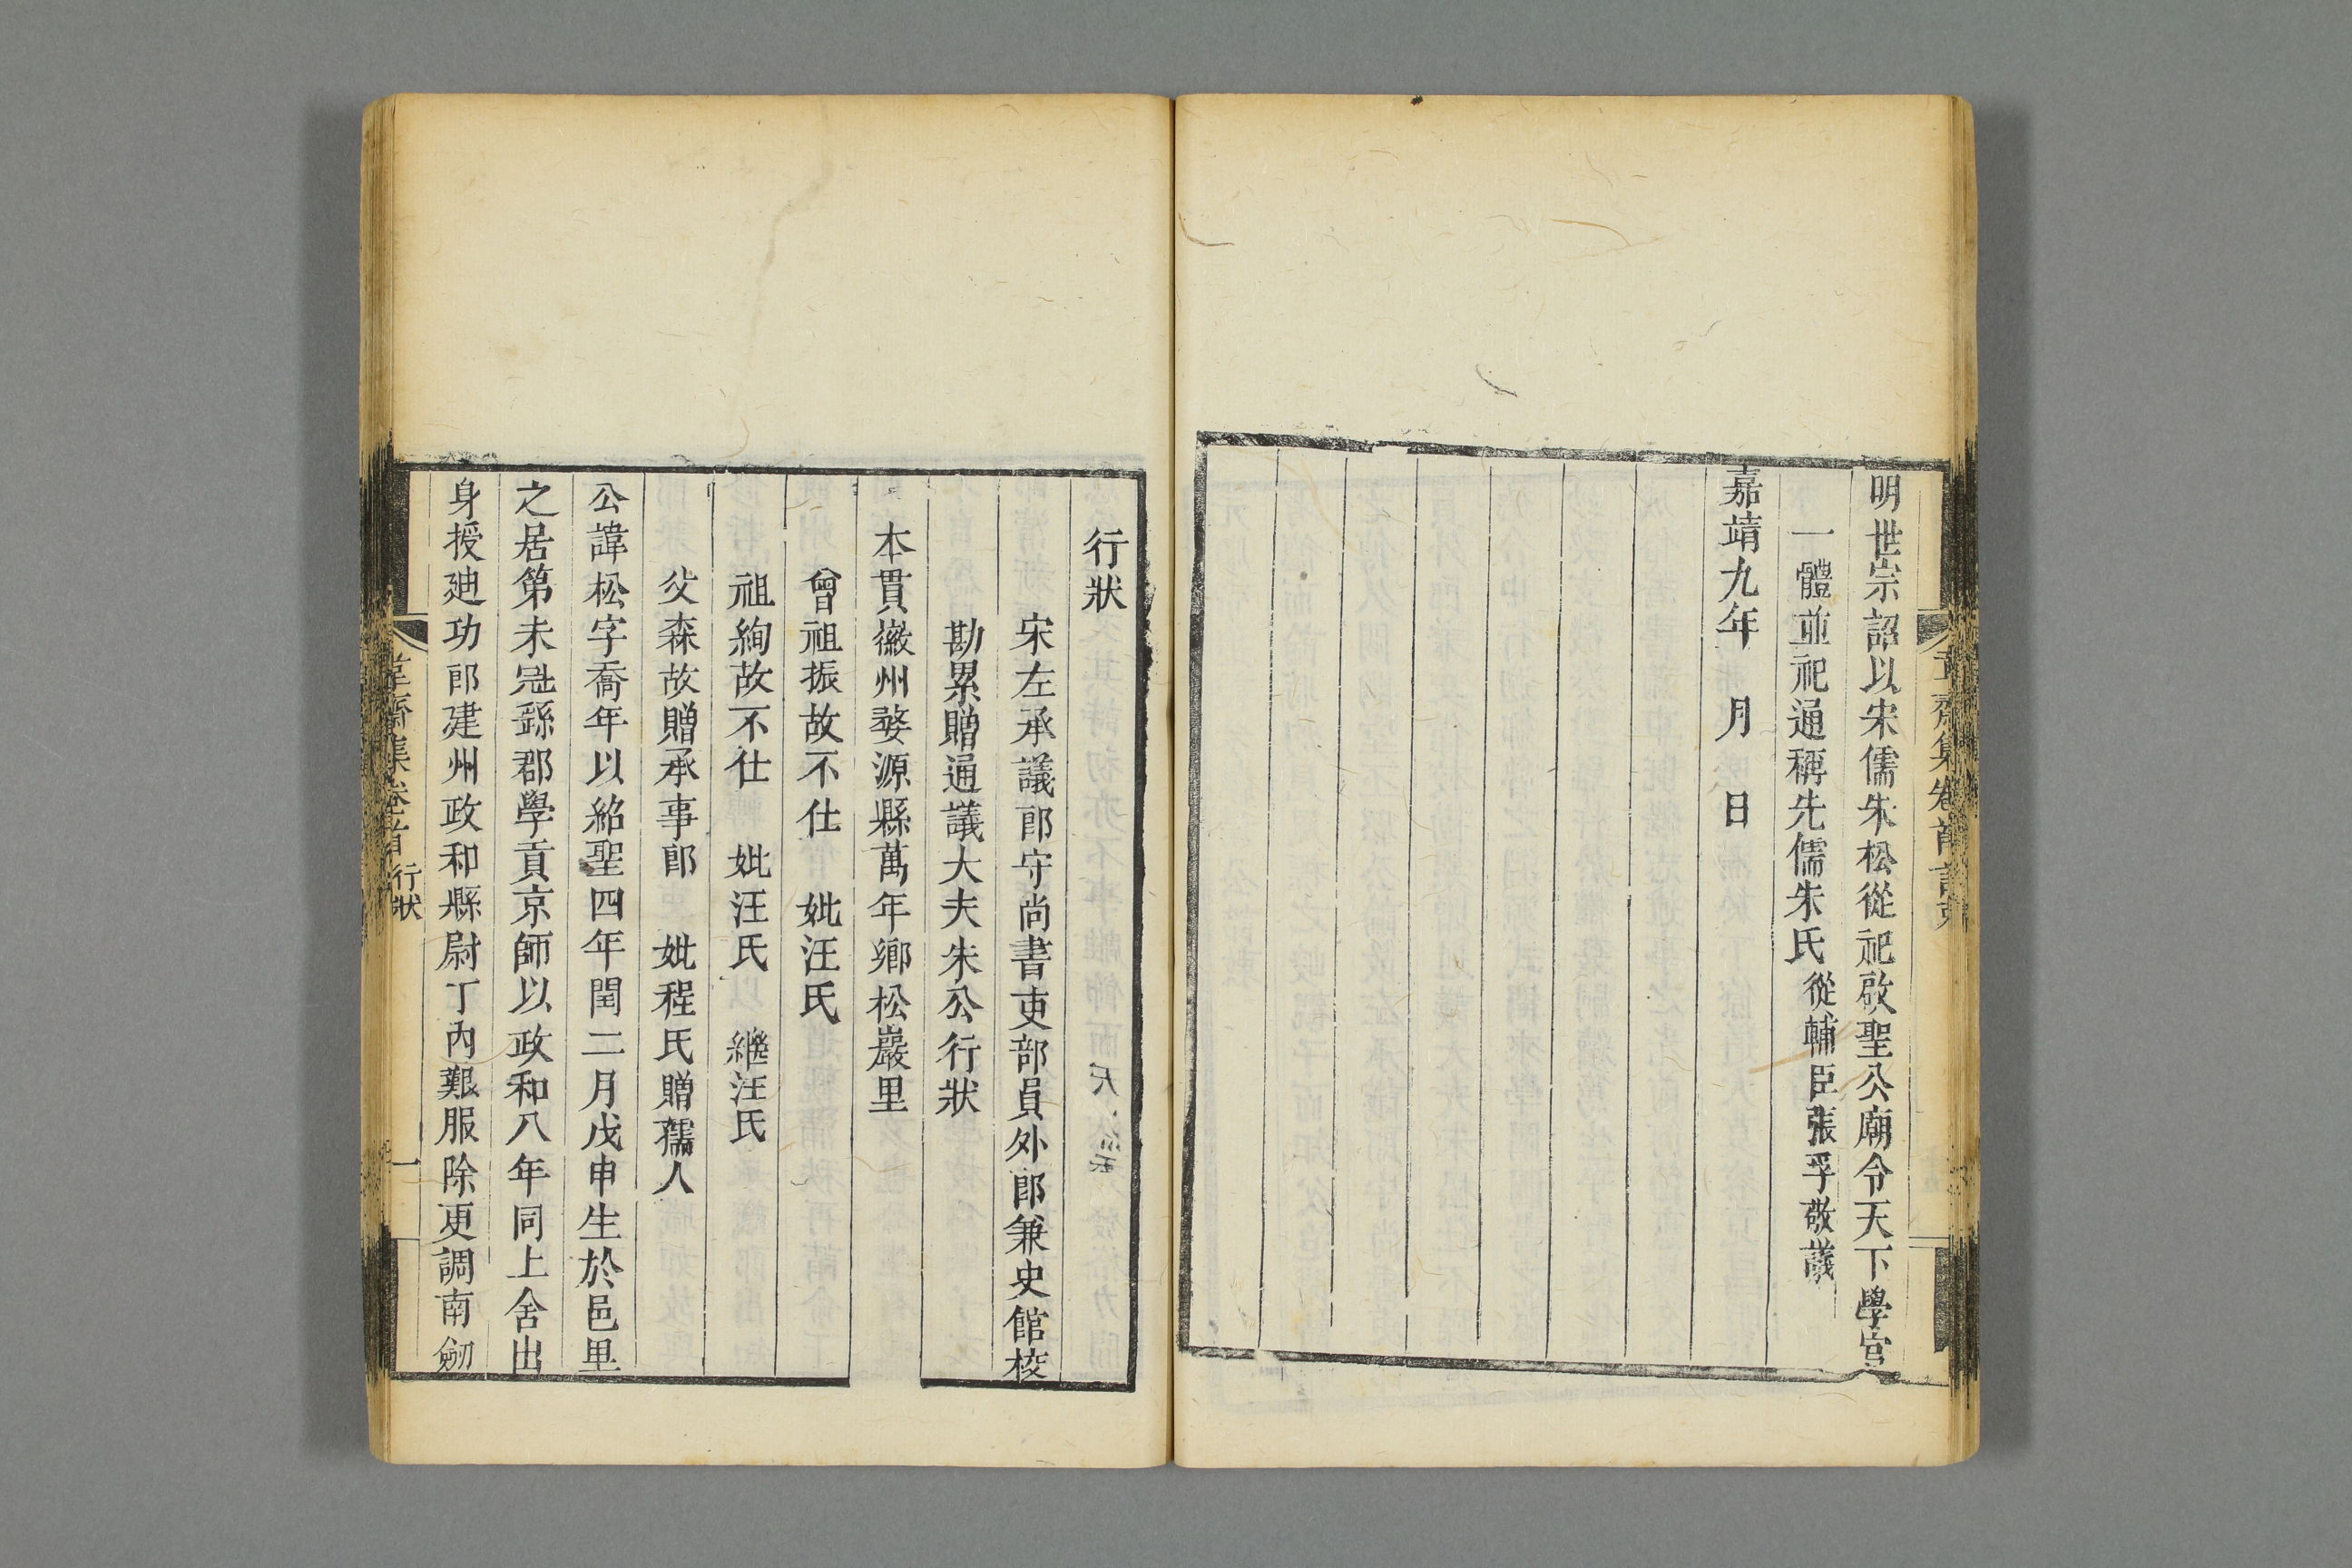 明世宗詔以宋儒朱松從祀啟聖公廟令天下學宮
一體並祀通稱先儒朱氏從輔臣張孚敬議
嘉靖九年　月　日
行狀
宋左承議郎守尚書吏部員外郎兼史館校
勘累贈通議大夫朱公行狀
本貫徽州婺源縣萬年鄉松巖里
曾祖振故不仕　妣汪氏
祖絢故不仕　妣汪氏　繼汪氏
父森故贈承事郎　妣程氏贈孺人
公諱松字喬年以紹聖四年閏二月戊申生於邑里
之居第未冠繇郡學貢京師以政和八年同上舍出
身授廸功郎建州政和縣尉丁內艱服除更調南劒
韋齋集卷首 行狀
一